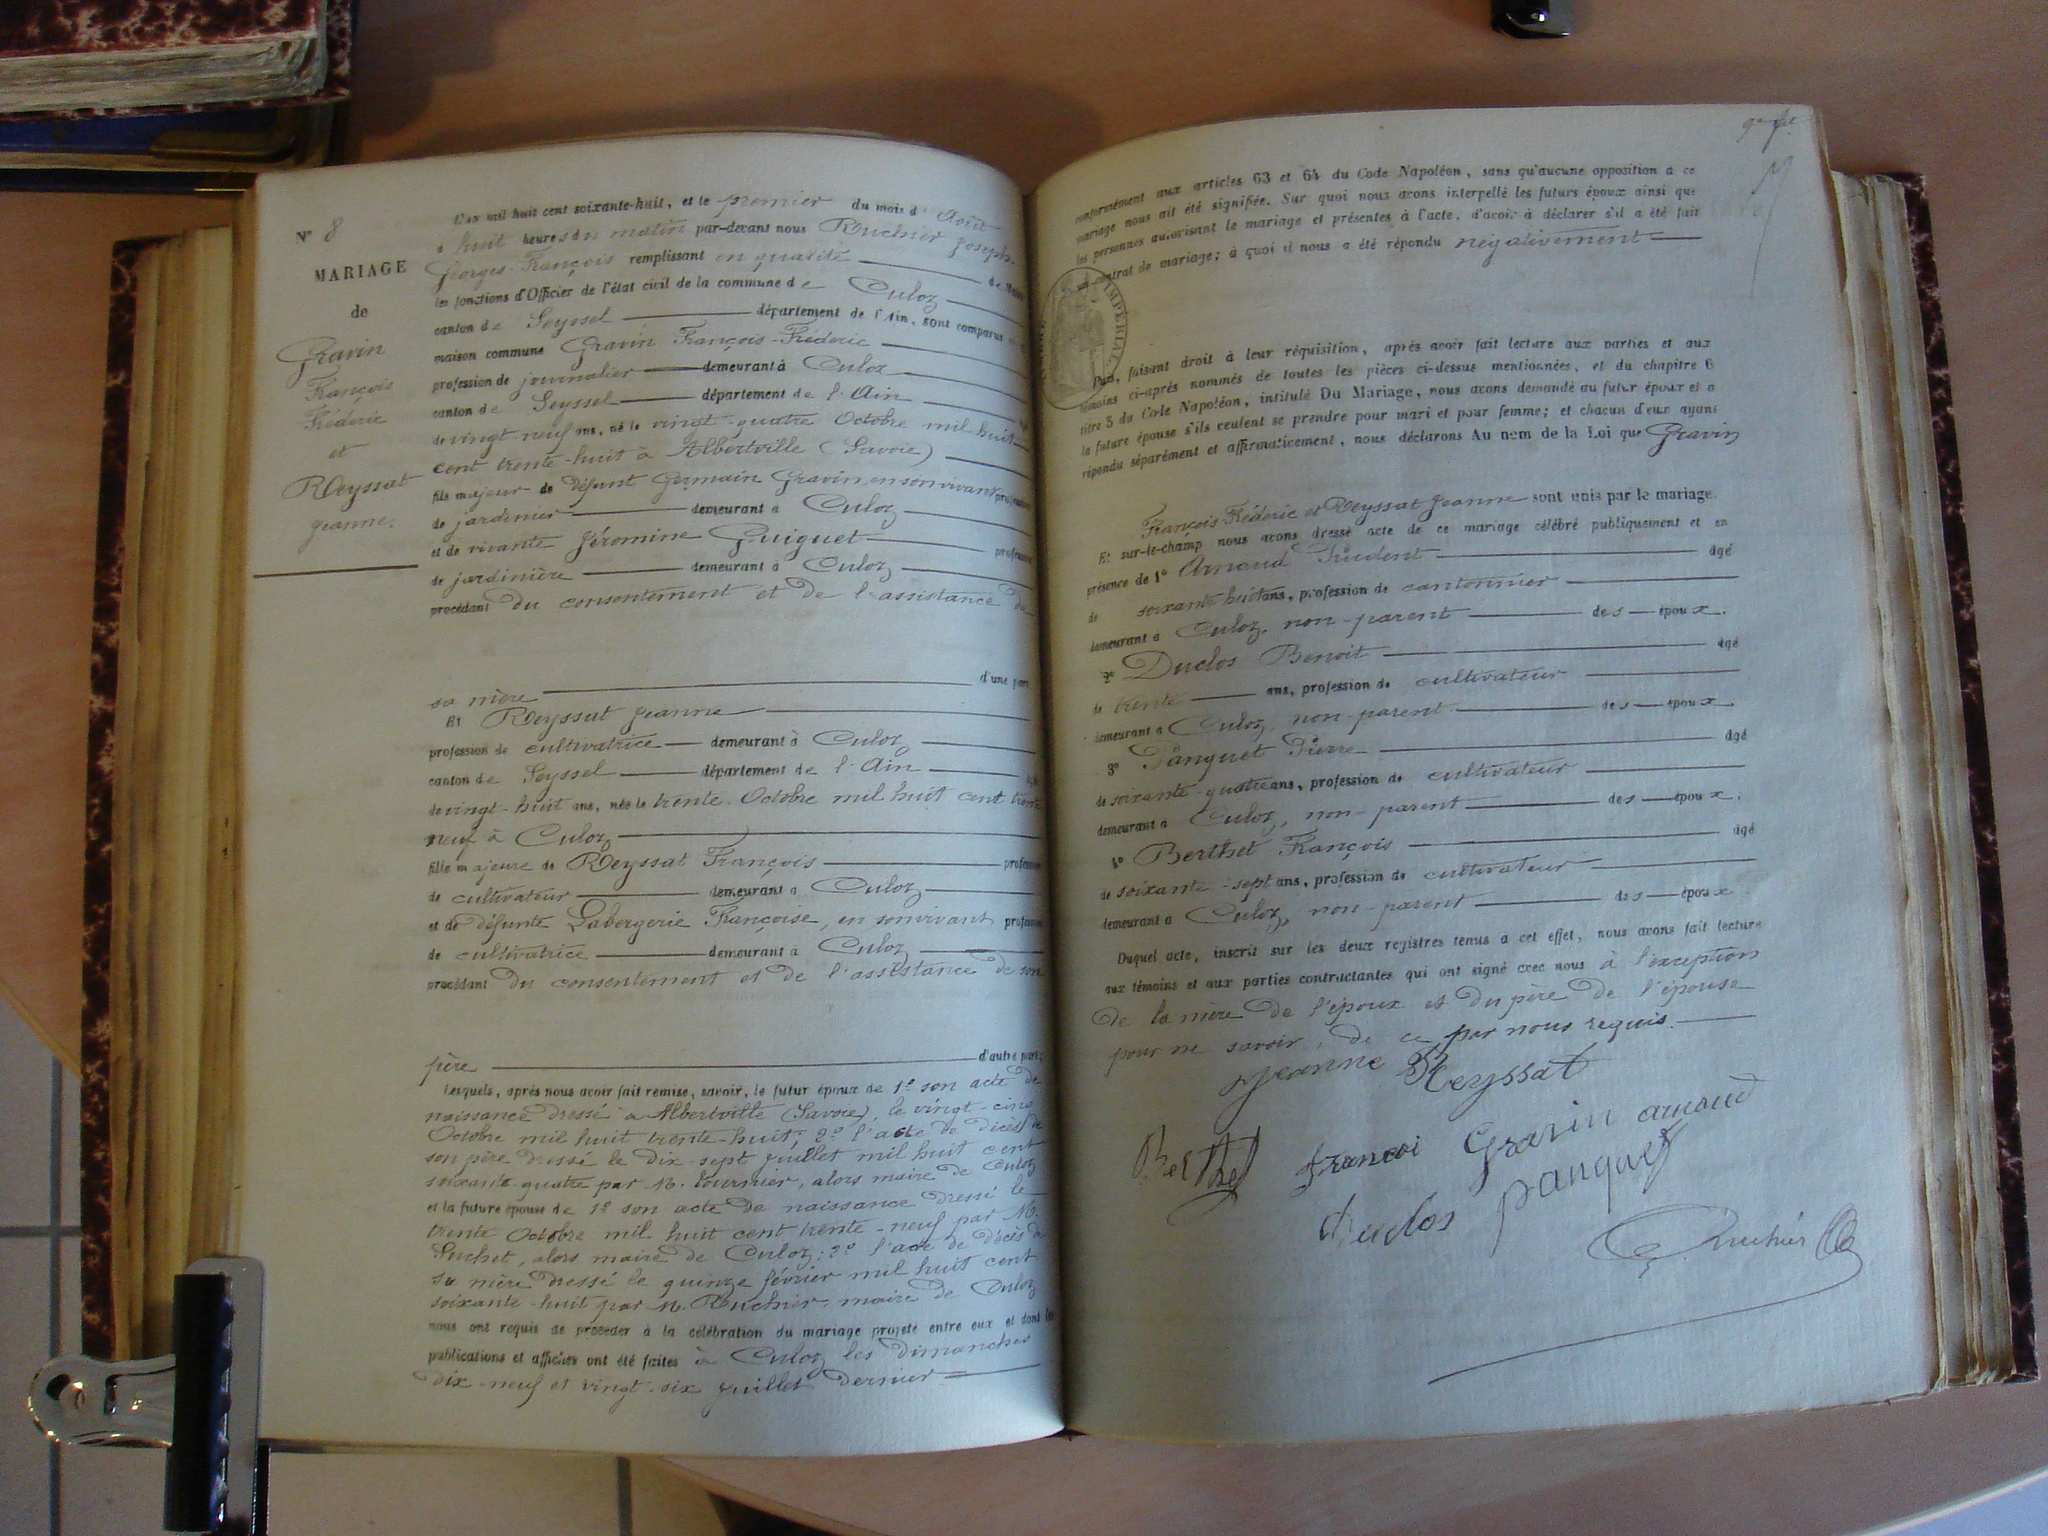 N° 8
MARIAGE
de
Gravin
François
Fréderic
et
Reyssat
Jeanne.
L'an mil huit cent soixante-huit, et le premier du mois d'Août
à huit heures du matin par-devant nous Ruchier Joseph-
Georges-François remplissant en qualité de Maire
les fonctions d'Officier de l'état civil de la commune de Culoz
canton de Seyssel département de l'Ain, sont comparus
maison commune Gravin François-Fréderic
profession de journalier demeurant à Culoz
canton de Seyssel département de l'Ain
de vingt neuf ans, né le vingt-quatre Octobre mil huit
cent trente-huit à Albertville (Savoie)
fils majeur de défunt Germain Gravin, en son vivant profession
de jardinier demeurant à Culoz
et de vivante Jéromine Guiguet profession
de jardinière demeurant à Culoz
procédant du consentement et de l'assistance de
sa mère d'une part
Et Reyssat Jeanne
profession de cultivatrice demeurant à Culoz
canton de Seyssel département de l'Ain
de vingt-huit ans, née le trente Octobre mil huit cent trente
neuf à Culoz
fille majeure de Reyssat François profession
de cultivateur demeurant à Culoz
et de défunte Labergerie Françoise, en son vivant profession
de cultivatrice demeurant à Culoz
procédant du consentement et de l'assistance de son
père d'autre part;
Lesquels, après nous avoir fait remise, savoir, le futur époux de 1° son acte de
naissance dressé à Albertville (Savoie), le vingt-cinq
Octobre mil huit trente-huit; 2° l'acte de décès de
son père dressé le dix-sept juillet mil huit cent
soixante-quatre par M. Fournier, alors maire de Culoz
et la future épouse de 1° son acte de naissance dressé le
trente Octobre mil huit cent trente-neuf par M.
Suchet, alors maire de Culoz; 2° l'acte de décès de
sa mère dressé le quinze février mil huit cent
soixante-huit par M. Ruchier maire de Culoz
nous ont requis de procéder à la célébration du mariage projeté entre eux et dont les
publications et affiches ont été faites à Culoz les dimanches
dix-neuf et vingt-six juillet dernier
conformément aux articles 63 et 64 du Code Napoléon, sans qu'aucune opposition à ce
mariage nous ait été signifiée. Sur quoi nous avons interpellé les futurs époux ainsi que
les personnes autorisant le mariage et présentes à l'acte, d'avoir à déclarer s'il a été fait
contrat de mariage; à quoi il nous a été répondu négativement
IMPÉRIAL
Puis, faisant droit à leur réquisition, après avoir fait lecture aux parties et aux
témoins ci-après nommés de toutes les pièces ci-dessus mentionnées, et du chapitre 6
titre 5 du Code Napoléon, intitulé Du Mariage, nous avons demandé au futur époux et à
la future épouse s'ils veulent se prendre pour mari et pour femme; et chacun d'eux ayant
répondu séparément et affirmativement, nous déclarons Au nom de la Loi que Gravin
François Fréderic et Reyssat Jeanne sont unis par le mariage.
Et sur-le-champ nous avons dressé acte de ce mariage célébré publiquement et en
présence de 1° Arnaud Prudent âgé
de soixante huit ans, profession de cantonnier
demeurant à Culoz, non-parent des époux.
2° Duclos Benoit âgé
de trente ans, profession de cultivateur
demeurant à Culoz, non-parent des époux.
3° Panguet Pierre âgé
de soixante-quatre ans, profession de cultivateur
demeurant à Culoz, non-parent des époux.
4° Berthet François âgé
de soixante-sept ans, profession de cultivateur
demeurant à Culoz, non-parent des époux
Duquel acte, inscrit sur les deux registres tenus à cet effet, nous avons fait lecture
aux témoins et aux parties contractantes qui ont signé avec nous à l'exception
de la mère de l'époux et du père de l'épouse
pour ne savoir, de ce par nous requis.
Jeanne Reyssat
Berthet francoi Gravin arnaud
Duclos panguet
Ruchier